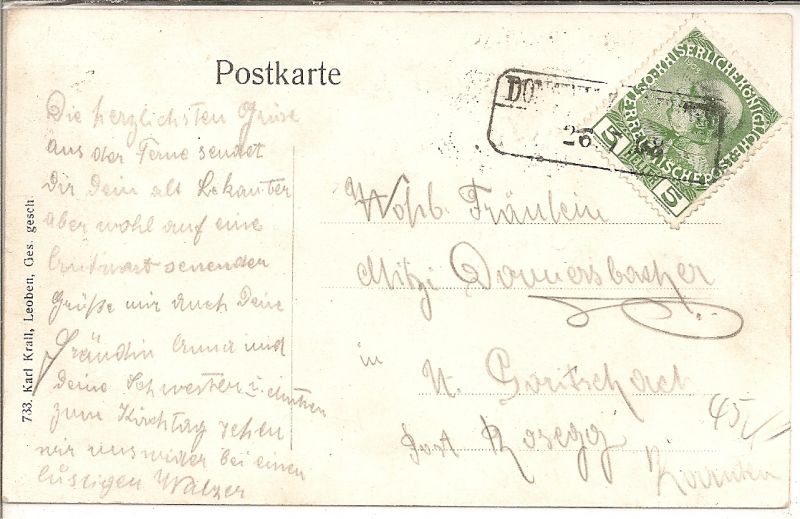 Postkarte
Die herzlichsten Grüße
aus der Ferne sendet
Dir Dein alt Bekanter
aber wohl auf eine
Grüße mir auch Deine
Freundin Anna und
Deine Schwester
zum Kirchtag sehen
wir uns wider bei einen
lustigen Walzer
733. Karl Krall, Leoben, Ges. gesch
KAISERLICHE KÖNIGLICHE
ÖSTERREICHISCHE POST
5 HELLER 5
26
Wohlb. Fräulein
Mitzi Donnersbacher
in
U. Goritschach
Post Rosegg
Kärnten
45